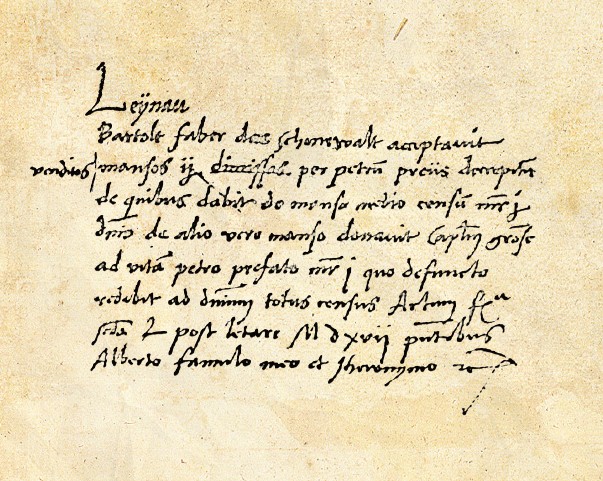 Leÿnau
Bartolt faber des schonewalt acceptavit
venditos mansos ij dimissos per petrum decrepitum
de quibus dabit de manso medio censum mr j
dnis de alio vero manso donavit Capłm
ad vitam petro prefato mr j quo defuncto
redibit ad dnum totus census Actum
scda post letare M D xvij pntibus
Alberto famulo meo et Jheronymo